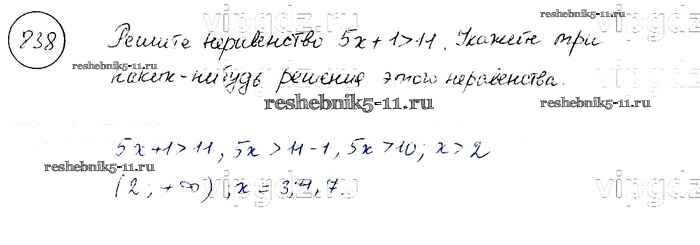 838 Решите неравенство 5x+1>11. Укажите три
каких-нибудь решения этого неравенства.
reshebnik5-11.ru
5x+1>11, 5x>11-1, 5x>10; x>2
(2; +∞), x = 3,4,7.
reshebnik5-11.ru
reshebnik5-11.ru
reshebnik5-11.ru
reshebnik5-11.ru
vipgdz
vipgdz
vipgdz